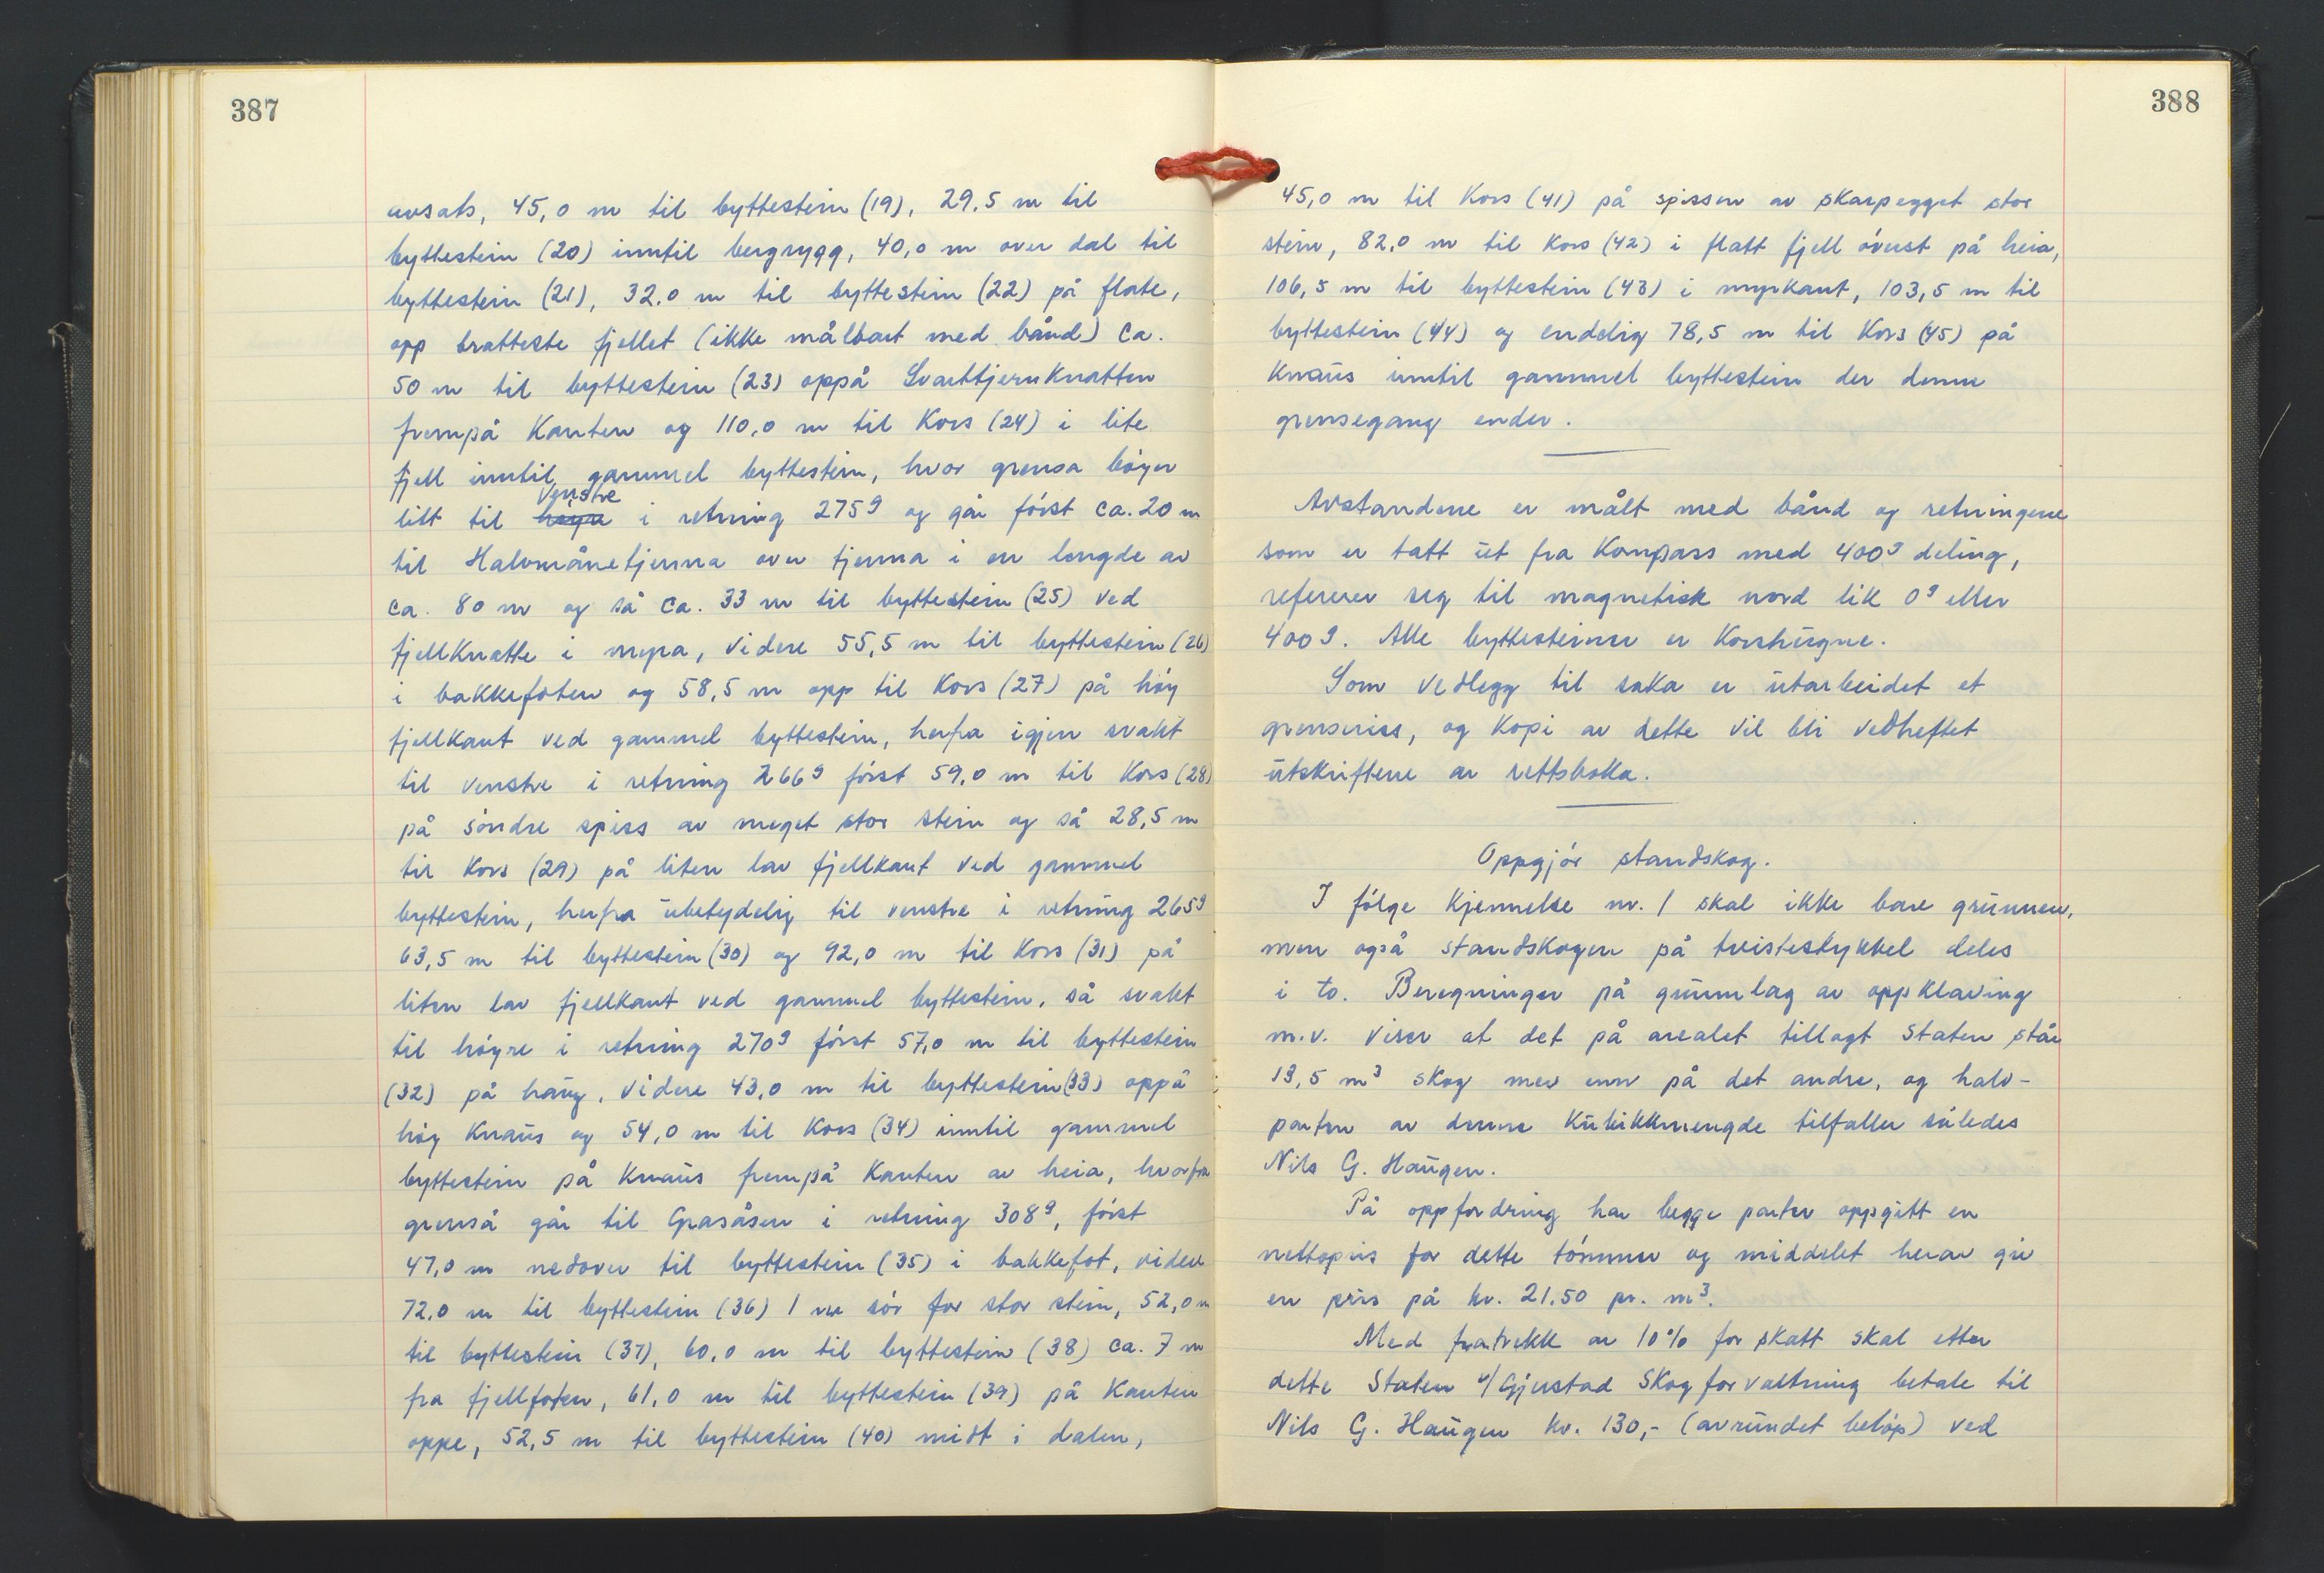 387
avsats, 45,0 m til byttestein (19), 29,5 m til
byttestein (20) inntil bergrygg, 40,0 m over dal til
byttestein (21), 32,0 m til byttestein (22) på flate,
opp bratteste fjellet (ikke målbart med bånd) ca.
50 m til byttestein (23) oppå Svarttjernknatten
frempå kanten og 110,0 m til kors (24) i lite
fjell inntil gammel byttestein, hvor grensa böyer
litt til höyre venstre i retning 275g og går först ca. 20 m
til Halvmånetjenna over tjenna i en lengde av
ca. 80 m og så ca. 33 m til byttestein (25) ved
fjellknatte i myra, videre 55,5 m til byttestein (26)
i bakkefoten og 58,5 m opp til kors (27) på höy
fjellkant ved gammel byttestein, herfra igjen svakt
til venstre i retning 266g först 59,0 m til kors (28)
på söndre spiss av meget stor stein og så 28,5 m
til kors (29) på liten lav fjellkant ved gammel
byttestein, herfra ubetydelig til venstre i retning 265g
63,5 m til byttestein (30) og 92,0 m til kors (31) på
liten lav fjellkant ved gammel byttestein, så svakt
til höyre i retning 270g först 57,0 m til byttestein
(32) på haug, videre 43,0 m til byttestein (33) oppå
höy knaus og 54,0 m til kors (34) inntil gammel
byttestein på knaus frempå kanten av heia, hvorfra
grenså går til Grasåsen i retning 308g, först
47,0 m nedover til byttestein (35) i bakkefot, videre
72,0 m til byttestein (36) 1 m sör for stor stein, 52,0 m
til byttestein (37), 60,0 m til byttestein (38) ca. 7 m
fra fjellfoten, 61,0 m til byttestein (39) på kanten
oppe, 52,5 m til byttestein (40) midt i dalen,
388
45,0 m til kors (41) på spissen av skarpegget stor
stein, 82,0 m til kors (42) i flatt fjell överst på heia,
106,5 m til byttestein (43) i myrkant, 103,5 m til
byttestein (44) og endelig 78,5 m til kors (45) på
knaus inntil gammel byttestein der denne
grensegang ender.
Avstandene er målt med bånd og retningene
som er tatt ut fra kompass med 400g deling,
referer seg til magnetisk nord lik 0g eller
400g. Alle byttesteiner er korshugne.
Som vedlegg til saka er utarbeidet et
grenseriss, og kopi av dette vil bli vedheftet
utskriftene av rettsboka.
Oppgjör standskog.
I fölge kjennelse nr. 1 skal ikke bare grunnen,
men også standskogen på tvistestykket deles
i to. Beregninger på grunnlag av oppklaving
m.v. viser at det på arealet tillagt Staten står
13,5 m³ skog mer enn på det andre, og halv-
parten av denne kubikkmengde tilfaller således
Nils G. Haugen.
På oppfordring har begge parter oppgitt en
nettopris for dette tömmer og middelet herav gir
en pris på kr. 21.50 pr. m³.
Med fratrekk av 10% for skatt skal etter
dette Staten v/Gjerstad Skogforvaltning betale til
Nils G. Haugen kr. 130,- (avrundet belöp) ved